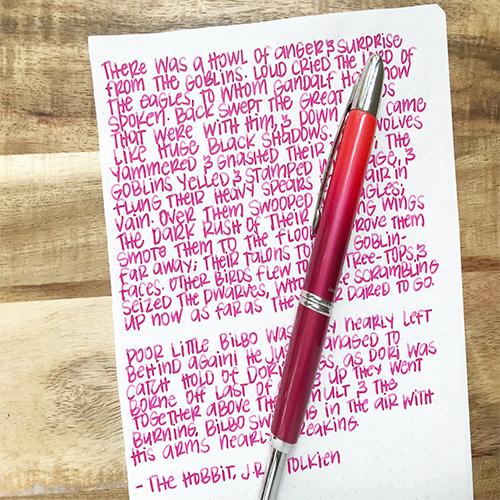 There was a howl of anger & surprise
from the goblins. Loud cried the Lord of
the Eagles, to whom Gandalf had now
spoken. Back swept the great birds
that were with him, & down they came
like huge black shadows. The wolves
yammered & gnashed their teeth; the
goblins yelled & stamped with rage, &
flung their heavy spears in the air in
vain. Over them swooped the eagles;
the dark rush of their beating wings
smote them to the floor or drove them
far away; their talons tore at goblin-
faces. Other birds flew to the tree-tops &
seized the dwarves, who were scrambling
up now as far as they ever dared to go.
Poor little Bilbo was very nearly left
behind again! He just managed to
catch hold of Dori's legs, as Dori was
borne off last of all; & up they went
together above the tumult & the
burning, Bilbo swinging in the air with
his arms nearly breaking.
- The Hobbit, J.R.R. Tolkien